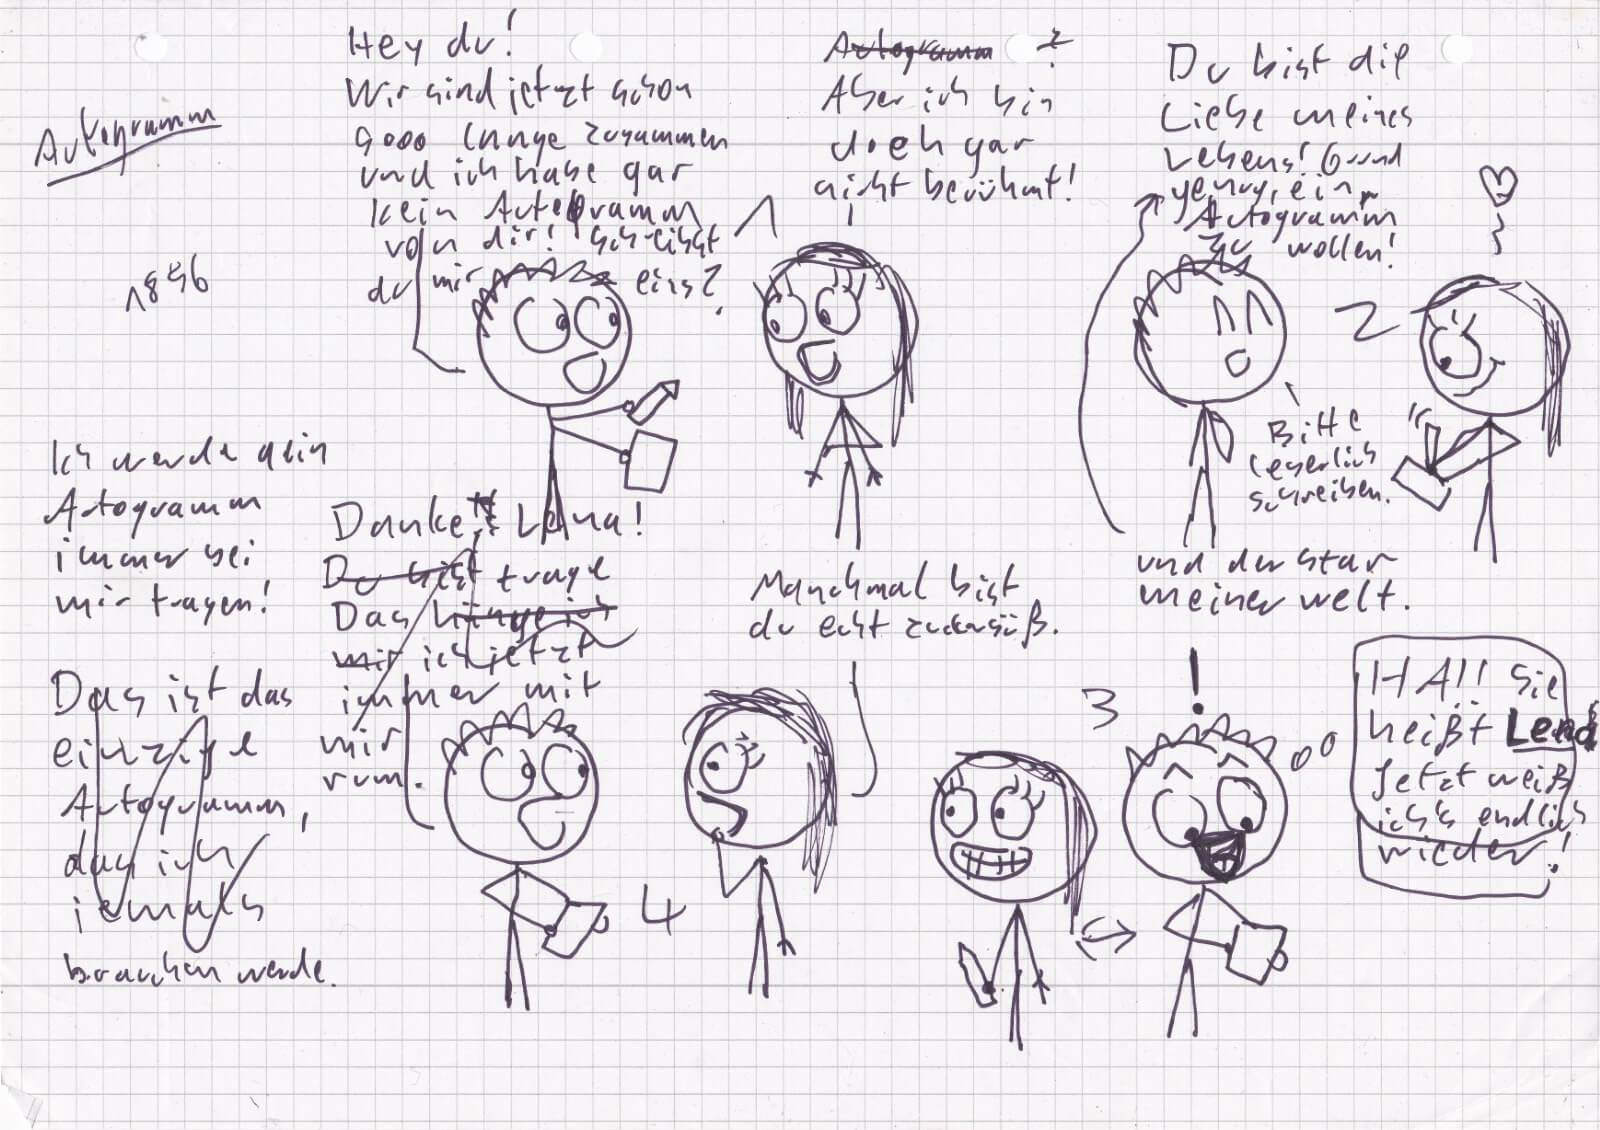 Autogramm
1896
Hey du!
Wir sind jetzt schon
sooo lange zusammen
und ich habe gar
kein Autogramm
von dir! Schreibst
du mir eins?
1
Autogramm?
Aber ich bin
doch gar
nicht berühmt!
Du bist die
Liebe meines
Lebens! Grund
genug, ein
Autogramm
zu wollen!
2
Bitte
leserlich
schreiben.
und der Star
meiner Welt.
3
!
HA!! Sie
heißt Lena!
Jetzt weiß
ich's endlich
wieder!
4
Danke Lena!
Du bist trage
Das hänge ich
mir ich jetzt
immer mit
mir
rum.
Manchmal bist
du echt zuckersüß.
Ich werde dein
Autogramm
immer bei
mir tragen!
Das ist das
einzige
Autogramm,
das ich
jemals
brauchen werde.